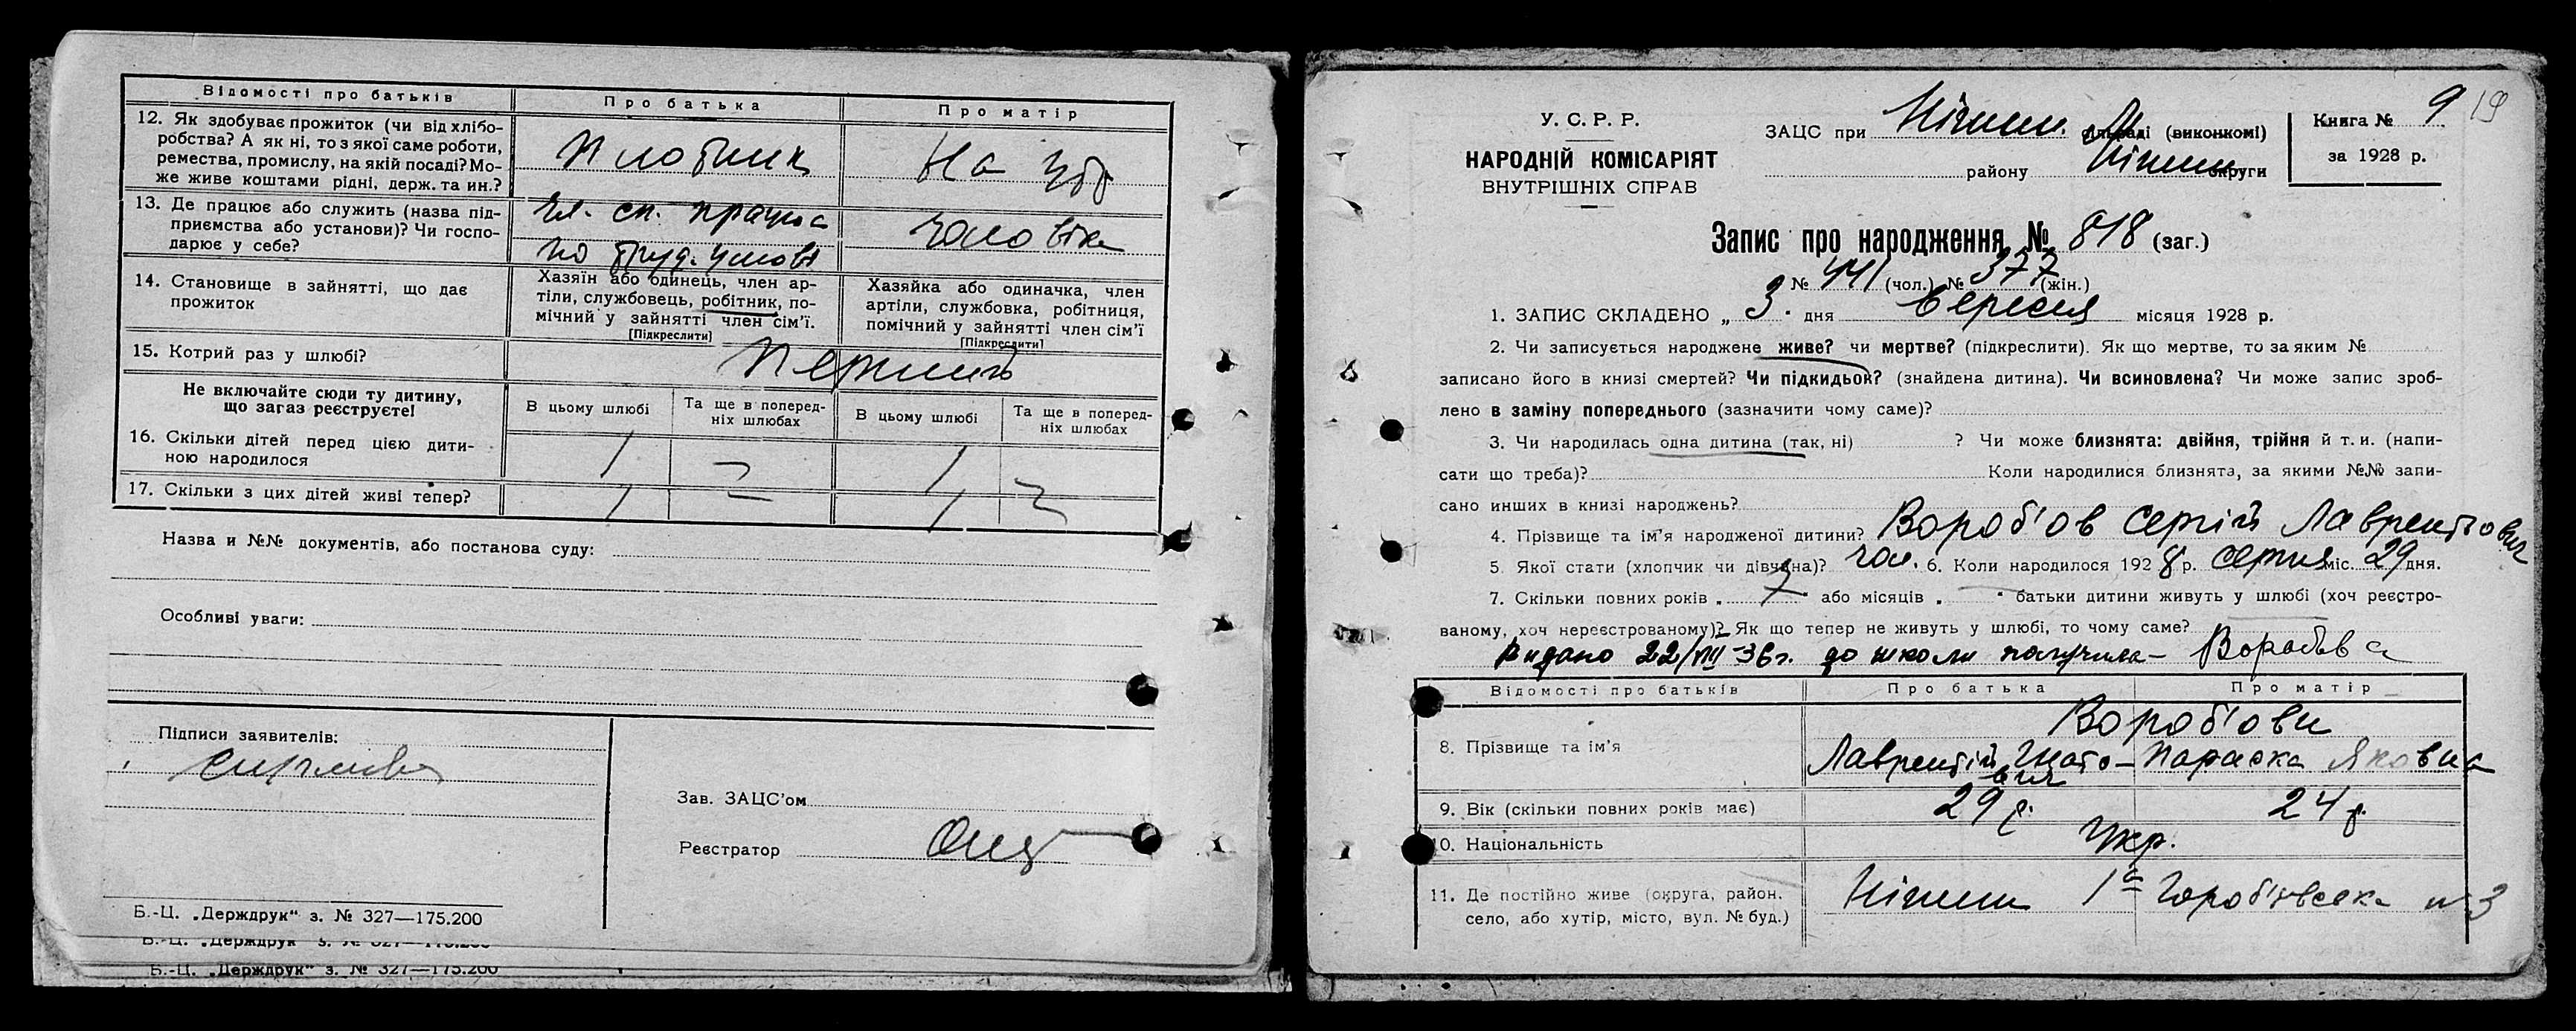 Відомості про батьків
Про батька
Про матір
12. Як здобуває прожиток (чи від хлібо-
робства? А як ні, то з якої саме роботи,
ремества, промислу, на якій посаді? Мо-
же живе коштами рідні, держ. та ин.?
Плотник
На утр
13. Де працює або служить (назва під-
приємства або установи)? Чи госпо-
дарює у себе?
чл. сп. працює
по труд. умові
чоловіка
14. Становище в зайнятті, що дає
прожиток
Хазяїн або одинець, член ар-
тіли, службовець, робітник, по-
мічний у зайнятті член сім'ї.
[Підкреслити]
Хазяйка або одиначка, член
артіли, службовка, робітниця,
помічний у зайнятті член сім'ї
[Підкреслити]
15. Котрий раз у шлюбі?
Не включайте сюди ту дитину,
що загаз реєструєте!
В цьому шлюбі
Та ще в поперед-
ніх шлюбах
В цьому шлюбі
Та ще в поперед-
ніх шлюбах
16. Скільки дітей перед цією дити-
ною народилося
1
1
17. Скільки з цих дітей живі тепер?
1
1
Назва и №№ документів, або постанова суду:
Особливі уваги:
Підписи заявителів:
Зав. ЗАЦС'ом
Реєстратор
Б.-Ц. „Держдрук" з. № 327—175.200
Б.-Ц. „Держдрук" з. № 327—175.200
Б.-Ц. „Держдрук" з. № 327—175.200
У. С. Р. Р.
НАРОДНІЙ КОМІСАРІЯТ
ВНУТРІШНІХ СПРАВ
ЗАЦС при Ніжин. сільраді (виконкомі)
району Ніжин округи
Книга № 9 19
за 1928 р.
Запис про народження № 818 (заг.)
№ 441 (чол.) № 377 (жін.)
1. ЗАПИС СКЛАДЕНО „ 3 " дня вересня місяця 1928 р.
2. Чи записується народжене живе? чи мертве? (підкреслити). Як що мертве, то за яким №
записано його в книзі смертей? Чи підкидьок? (знайдена дитина). Чи всиновлена? Чи може запис зроб-
лено в заміну попереднього (зазначити чому саме)?
3. Чи народилась одна дитина (так, ні) ? Чи може близнята: двійня, трійня й т. и. (напи-
сати що треба)? Коли народилися близнята, за якими №№ запи-
сано инших в книзі народжень?
4. Прізвище та ім'я народженої дитини? Вороб'ов Сергій Лаврентьович
5. Якої стати (хлопчик чи дівчина)? чол. 6. Коли народилося 1928 р. серпня міс. 29 дня.
7. Скільки повних років „ 7 " або місяців „ " батьки дитини живуть у шлюбі (хоч реєстро-
ваному, хоч нереєстрованому)? Як що тепер не живуть у шлюбі, то чому саме?
Видано 22/VIII-36г. до школи получила—
Відомості про батьків
Про батька
Про матір
8. Прізвище та ім'я
Вороб'ови
Лаврентій Гнато-
вич
Параска Яковна
9. Вік (скільки повних років має)
29 р.
24 р.
10. Національність
Укр.
11. Де постійно живе (округа, район.
село, або хутір, місто, вул. № буд.)
Ніжин 1ª
№ 3